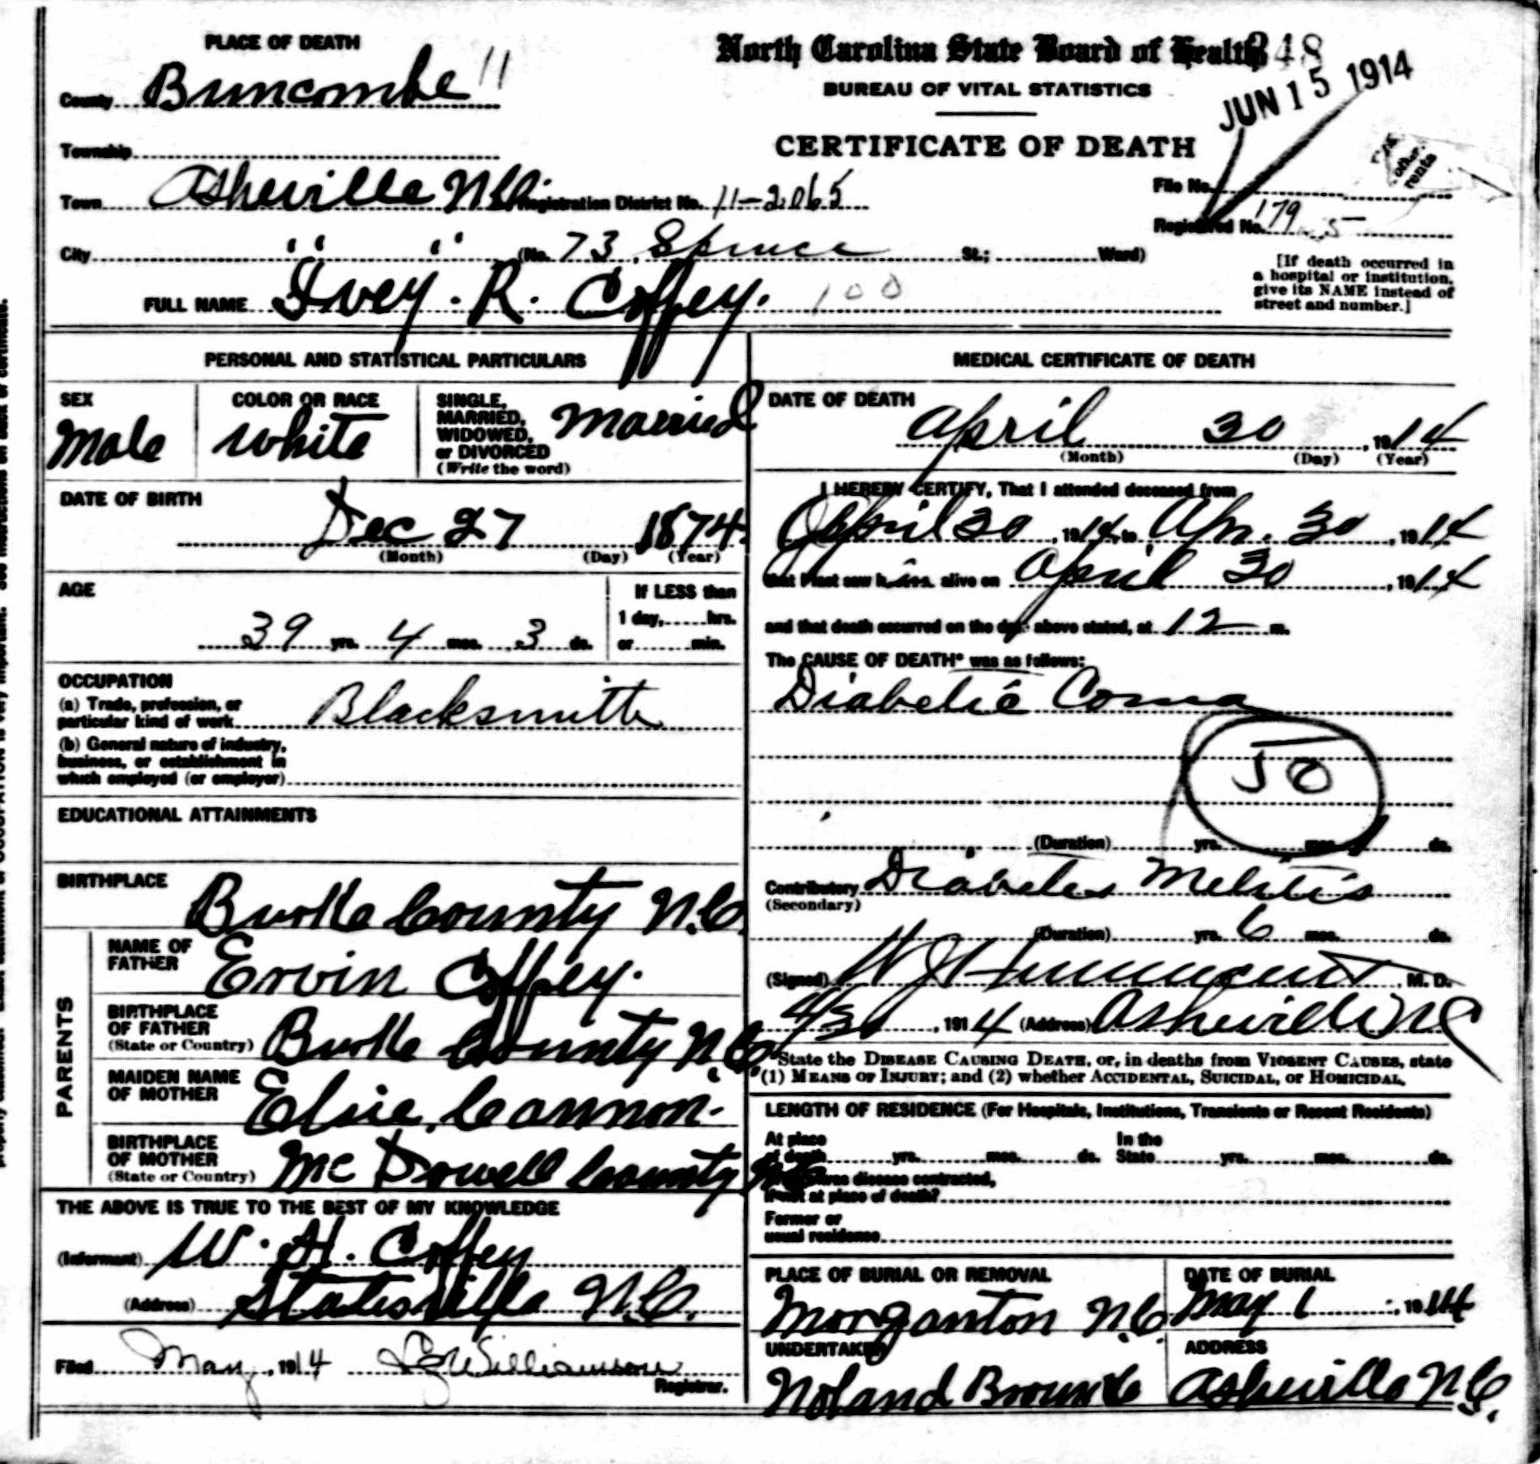 PLACE OF DEATH
County Buncombe 11
Township
Town Asheville N.C. Registration District No. 11-2065
City " " (No. 73 Spruce St.; Ward)
FULL NAME Ivey. R. Coffey. 100
North Carolina State Board of Health 348
BUREAU OF VITAL STATISTICS
JUN 15 1914
CERTIFICATE OF DEATH
File No.
Registered No. 179
[If death occurred in
a hospital or institution,
give its NAME instead of
street and number.]
PERSONAL AND STATISTICAL PARTICULARS
SEX
Male
COLOR OR RACE
White
SINGLE,
MARRIED,
WIDOWED,
or DIVORCED
(Write the word)
Married
DATE OF BIRTH
Dec 27 1874
(Month) (Day) (Year)
AGE
39 yrs. 4 mos. 3 ds.
If LESS than
1 day, hrs.
or min.
OCCUPATION
(a) Trade, profession, or
particular kind of work Blacksmith
(b) General nature of industry,
business, or establishment in
which employed (or employer)
EDUCATIONAL ATTAINMENTS
BIRTHPLACE
Burke County N.C.
PARENTS
NAME OF
FATHER Ervin Coffey.
BIRTHPLACE
OF FATHER
(State or Country) Burke County N.C.
MAIDEN NAME
OF MOTHER Elsie Cannon-
BIRTHPLACE
OF MOTHER
(State or Country) McDowell County N.C.
THE ABOVE IS TRUE TO THE BEST OF MY KNOWLEDGE
(Informant) W. H. Coffey
(Address) Statesville N.C.
Filed May, 1914 Williamson
Registrar.
MEDICAL CERTIFICATE OF DEATH
DATE OF DEATH
April 30, 1914
(Month) (Day) (Year)
I HEREBY CERTIFY, That I attended deceased from
April 30, 1914, to Apr. 30, 1914
that I last saw him alive on April 30, 1914
and that death occurred on the day above stated, at 12 m.
The CAUSE OF DEATH* was as follows:
Diabetic Coma
50
(Duration) yrs. mos. 1 ds.
Contributory Diabetes Melitis
(Secondary)
(Duration) yrs. 6 mos. ds.
(Signed) , M. D.
4/30, 1914 (Address) Asheville NC
*State the DISEASE CAUSING DEATH, or, in deaths from VIOLENT CAUSES, state
(1) MEANS OF INJURY; and (2) whether ACCIDENTAL, SUICIDAL, or HOMICIDAL.
LENGTH OF RESIDENCE (For Hospitals, Institutions, Transients or Recent Residents)
At place
of death yrs. mos. ds.
In the
State yrs. mos. ds.
Where was disease contracted,
if not at place of death?
Former or
usual residence
PLACE OF BURIAL OR REMOVAL
Morganton N.C.
DATE OF BURIAL
May 1, 1914
UNDERTAKER
Noland Brown &
ADDRESS
Asheville N.C.